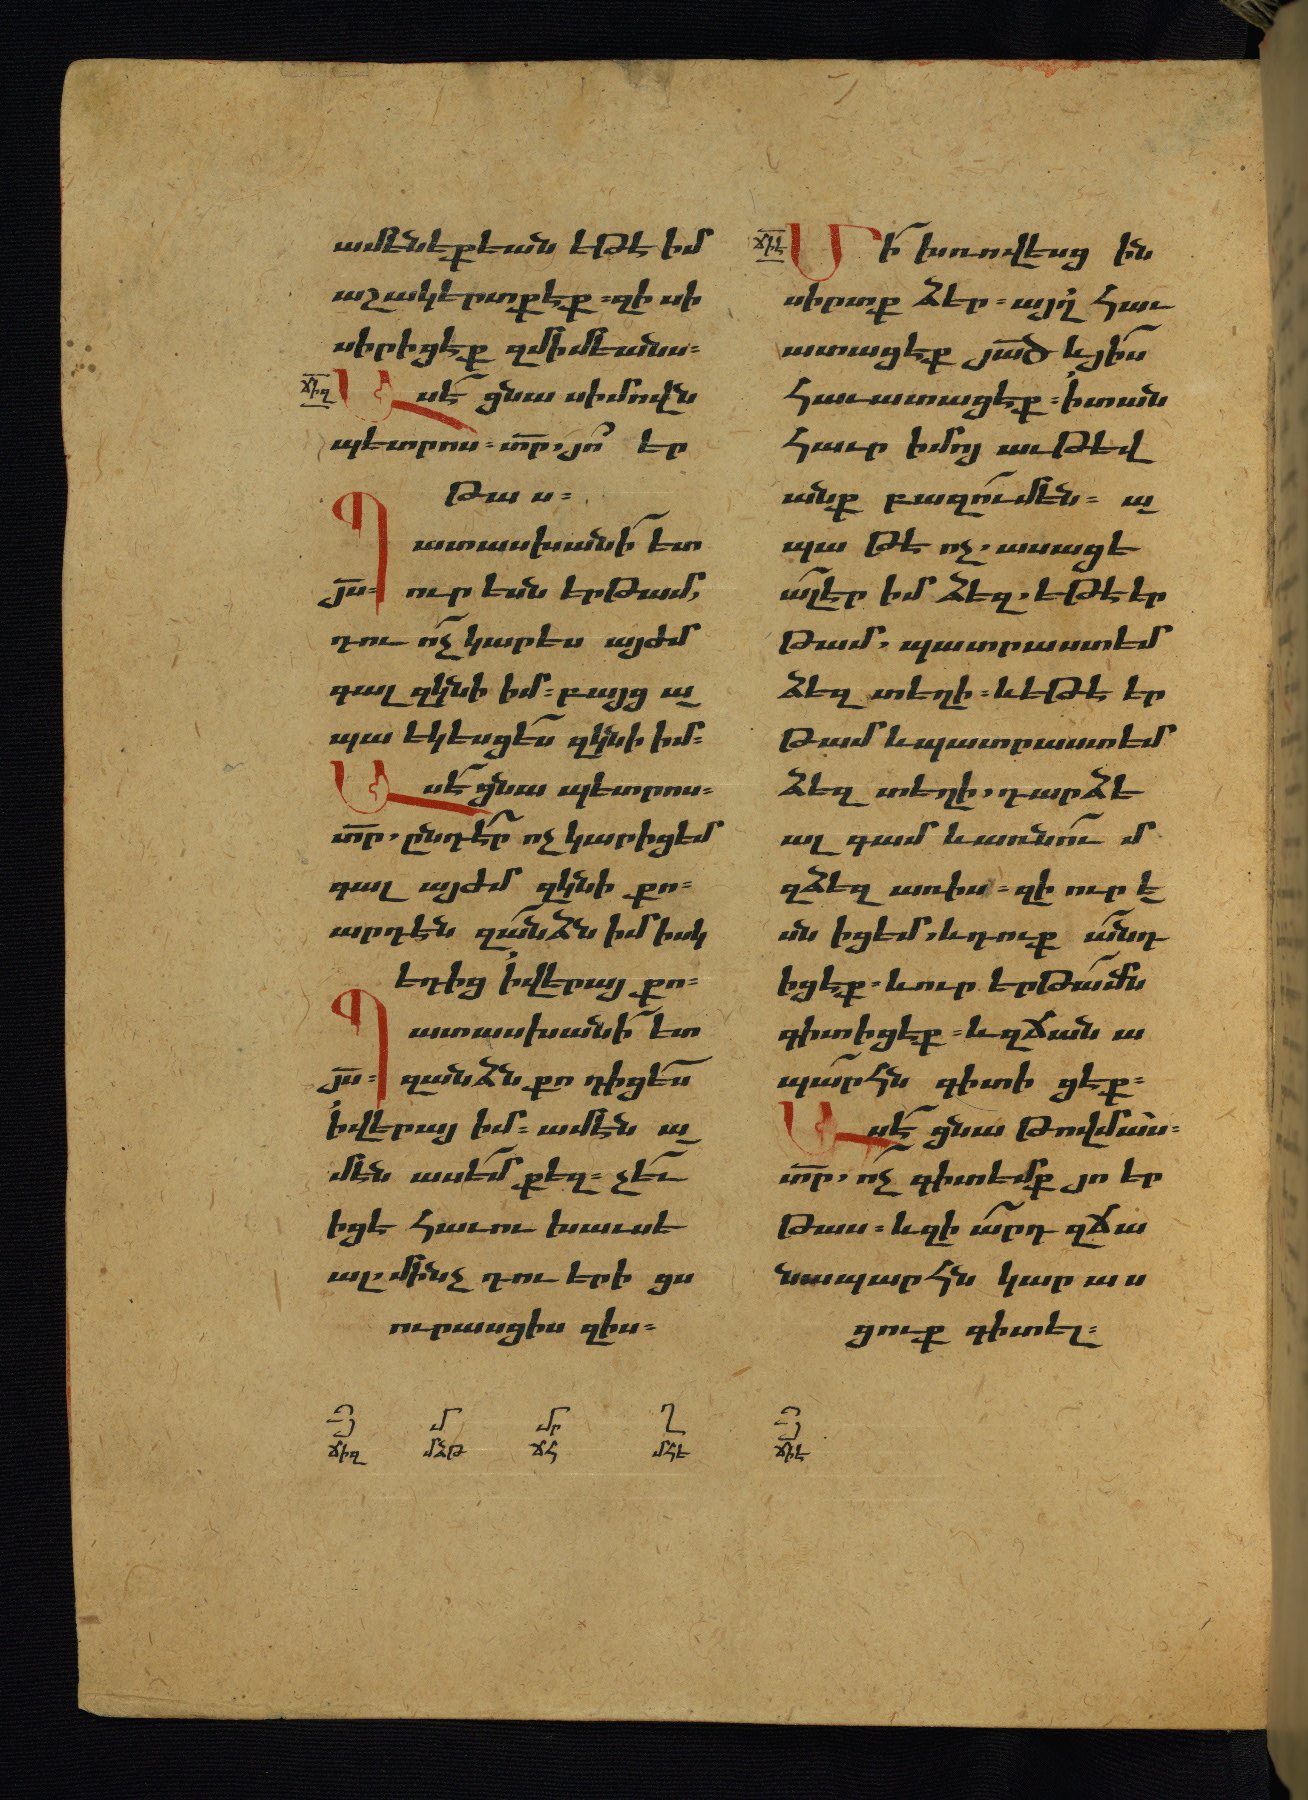 ամենեքեան եթէ իմ
աշակերտքէք ։ զի սի
սիրիցէք զմիմեանս ։
ճիզ Ասէ ցնա սիմովն
պետրոս ։ տր, յո՞ եր
թաս ։
Պատասխանի ետ
յս ։ ուր եսն երթամ,
դու ո՛չ կարես այժմ
գալ զկնի իմ ։ բայց ա
պա եկեսցես զկնի իմ ։
Ասէ ցնա պետրոս ։
տր, ընդէ՞ր ոչ կարիցեմ
գալ այժմ զկնի քո ։
արդէն զանձն իմ իսկ
եդից ի վերայ քո ։
Պատասխանի ետ
յս ։ զանձն քո դիցես
ի վերայ իմ ։ ամէն ա
մէն ասեմ քեզ ։ չեւ
իցե հաւու խաւսե
ալ, մինչ դու երի ցս
ուրասցիս զիս ։
ճիէ Մի՛ խռովեսց ին
սիրտք ձեր ։ այղ հաւ
ատացէք յած և յիս
հաւատացէք ։ ի տան
հաւր իմոյ աւթեվ
անք բազում են ։ ա
պա թէ ոչ, ասացե
ալ էր իմ ձեզ, եթէ եր
թամ, պատրաստեմ
ձեզ տեղի ։ և եթէ եր
թամ և պատրաստեմ
ձեզ տեղի, դարձե
ալ գամ և առնում
զձեզ առիս ։ զի ուր ե
սն իցեմ, և դուք անդ
իցէք ։ և ուր երթամն
գիտիցէք ։ և զճան ա
պարհն գիտի ցէք ։
Ասէ ցնա թովմաս ։
տր, ո՛չ գիտեմք յո եր
թաս ։ և զի արդ զճա
նապարհն կար աս
ցուք գիտել ։
Յ մ մր ղ Յ
ճիզ մձթ ճհ մհե ճիէ